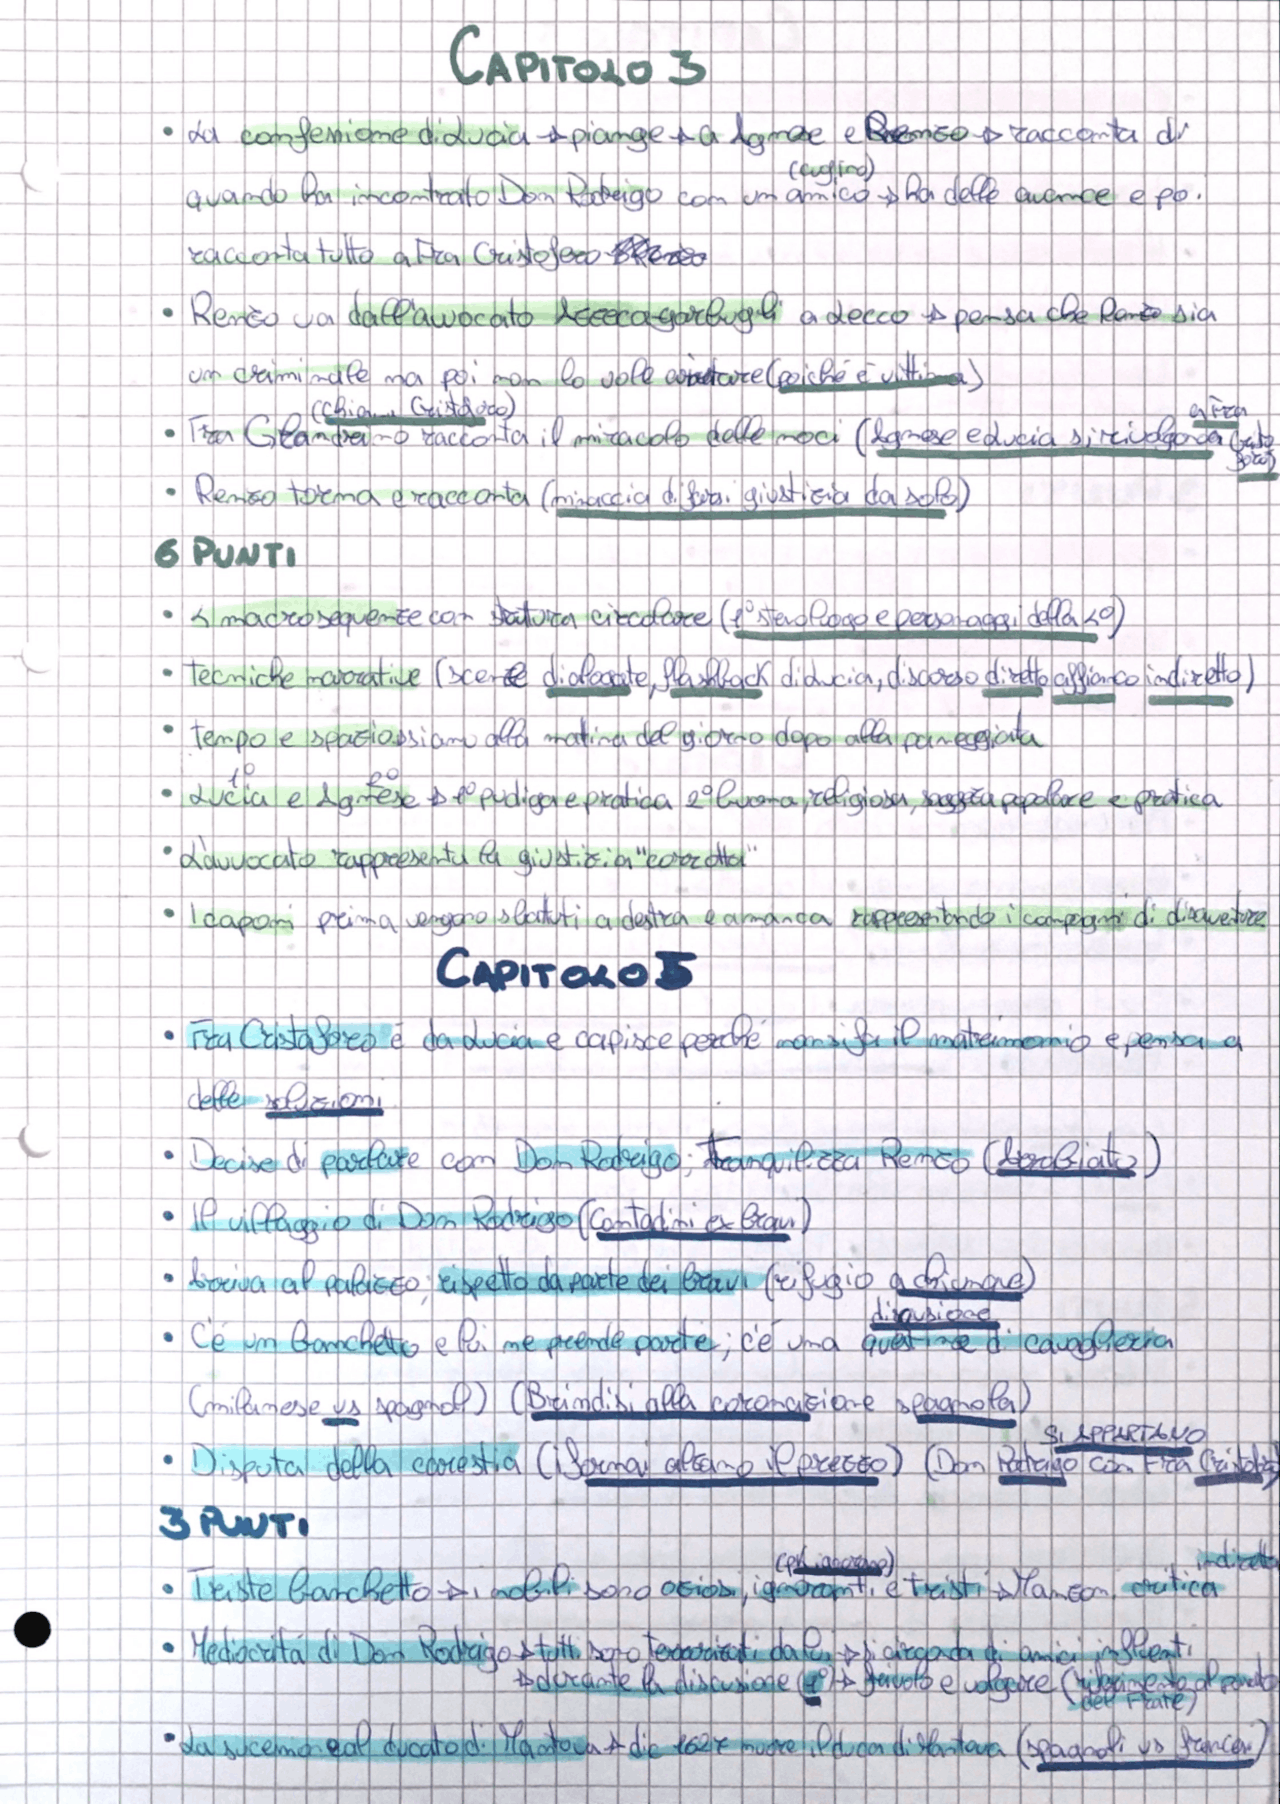 CAPITOLO 3
• La confessione di Lucia → piange → a Agnese e Renzo → racconta di
(cugino)
quando ha incontrato Don Rodrigo con un amico → ha delle avance e poi
racconta tutto a Fra Cristoforo
• Renzo va dall'avvocato Azzeccagarbugli a Lecco → pensa che Renzo sia
un criminale ma poi non lo vole aiutare (poiché è vittima)
(chiama Cristoforo) a Fra
• Fra Galdino racconta il miracolo delle noci (Agnese e Lucia si rivolgono Cristoforo)
• Renzo torna e racconta (minaccia di farsi giustizia da solo)
6 PUNTI
• macrosequenze con strutura circolare (1° stesso luogo e personaggi della
• Tecniche narrative (scene dialogate, flashback di Lucia, discorso diretto affianco indiretto)
• Tempo e spazio: siamo alla matina del giorno dopo alla passeggiata
1° 2°
• Lucia e Agnese → 1° pudiga e pratica 2° buona, religiosa, saggezza popolare e pratica
• L'avvocato rappresenta la giustizia "corrotta"
• I caponi prima vengono sbatuti a destra e a manca rappresentando i compagni di disavventure
CAPITOLO 5
• Fra Cristoforo è da Lucia e capisce perché non si fa il matrimonio e pensa a
delle soluzioni
• Decise di parlare con Don Rodrigo; tranquilizza Renzo (arrabbiato)
• Il villaggio di Don Rodrigo (Contadini ex bravi)
• Arriva al palazzo; rispetto da parte dei bravi (rifugio a chiunque)
discusione
• C'è un banchetto e lui ne prende parte; c'è una questione di cavaglieria
(milanese vs spagnol) (Brindisi alla coronazione spagnola)
SI APPARTANO
• Disputa della carestia (i fornai alzano il prezzo) (Don Rodrigo con Fra Cristoforo)
3 PUNTI
(più ignorano) indiretta
• Triste banchetto → i nobili sono oziosi, ignoranti e tristi → Manzoni critica
• Mediocrità di Don Rodrigo → tutti sono terrorizzati da lui → si circonda di amici influenti
→ durante la discusione (1°) → frivolo e volgare (riferimento al
del Frate)
• La sucessione al ducato di Mantova → dic 1627 muore il duca di Mantova (spagnoli vs francesi)